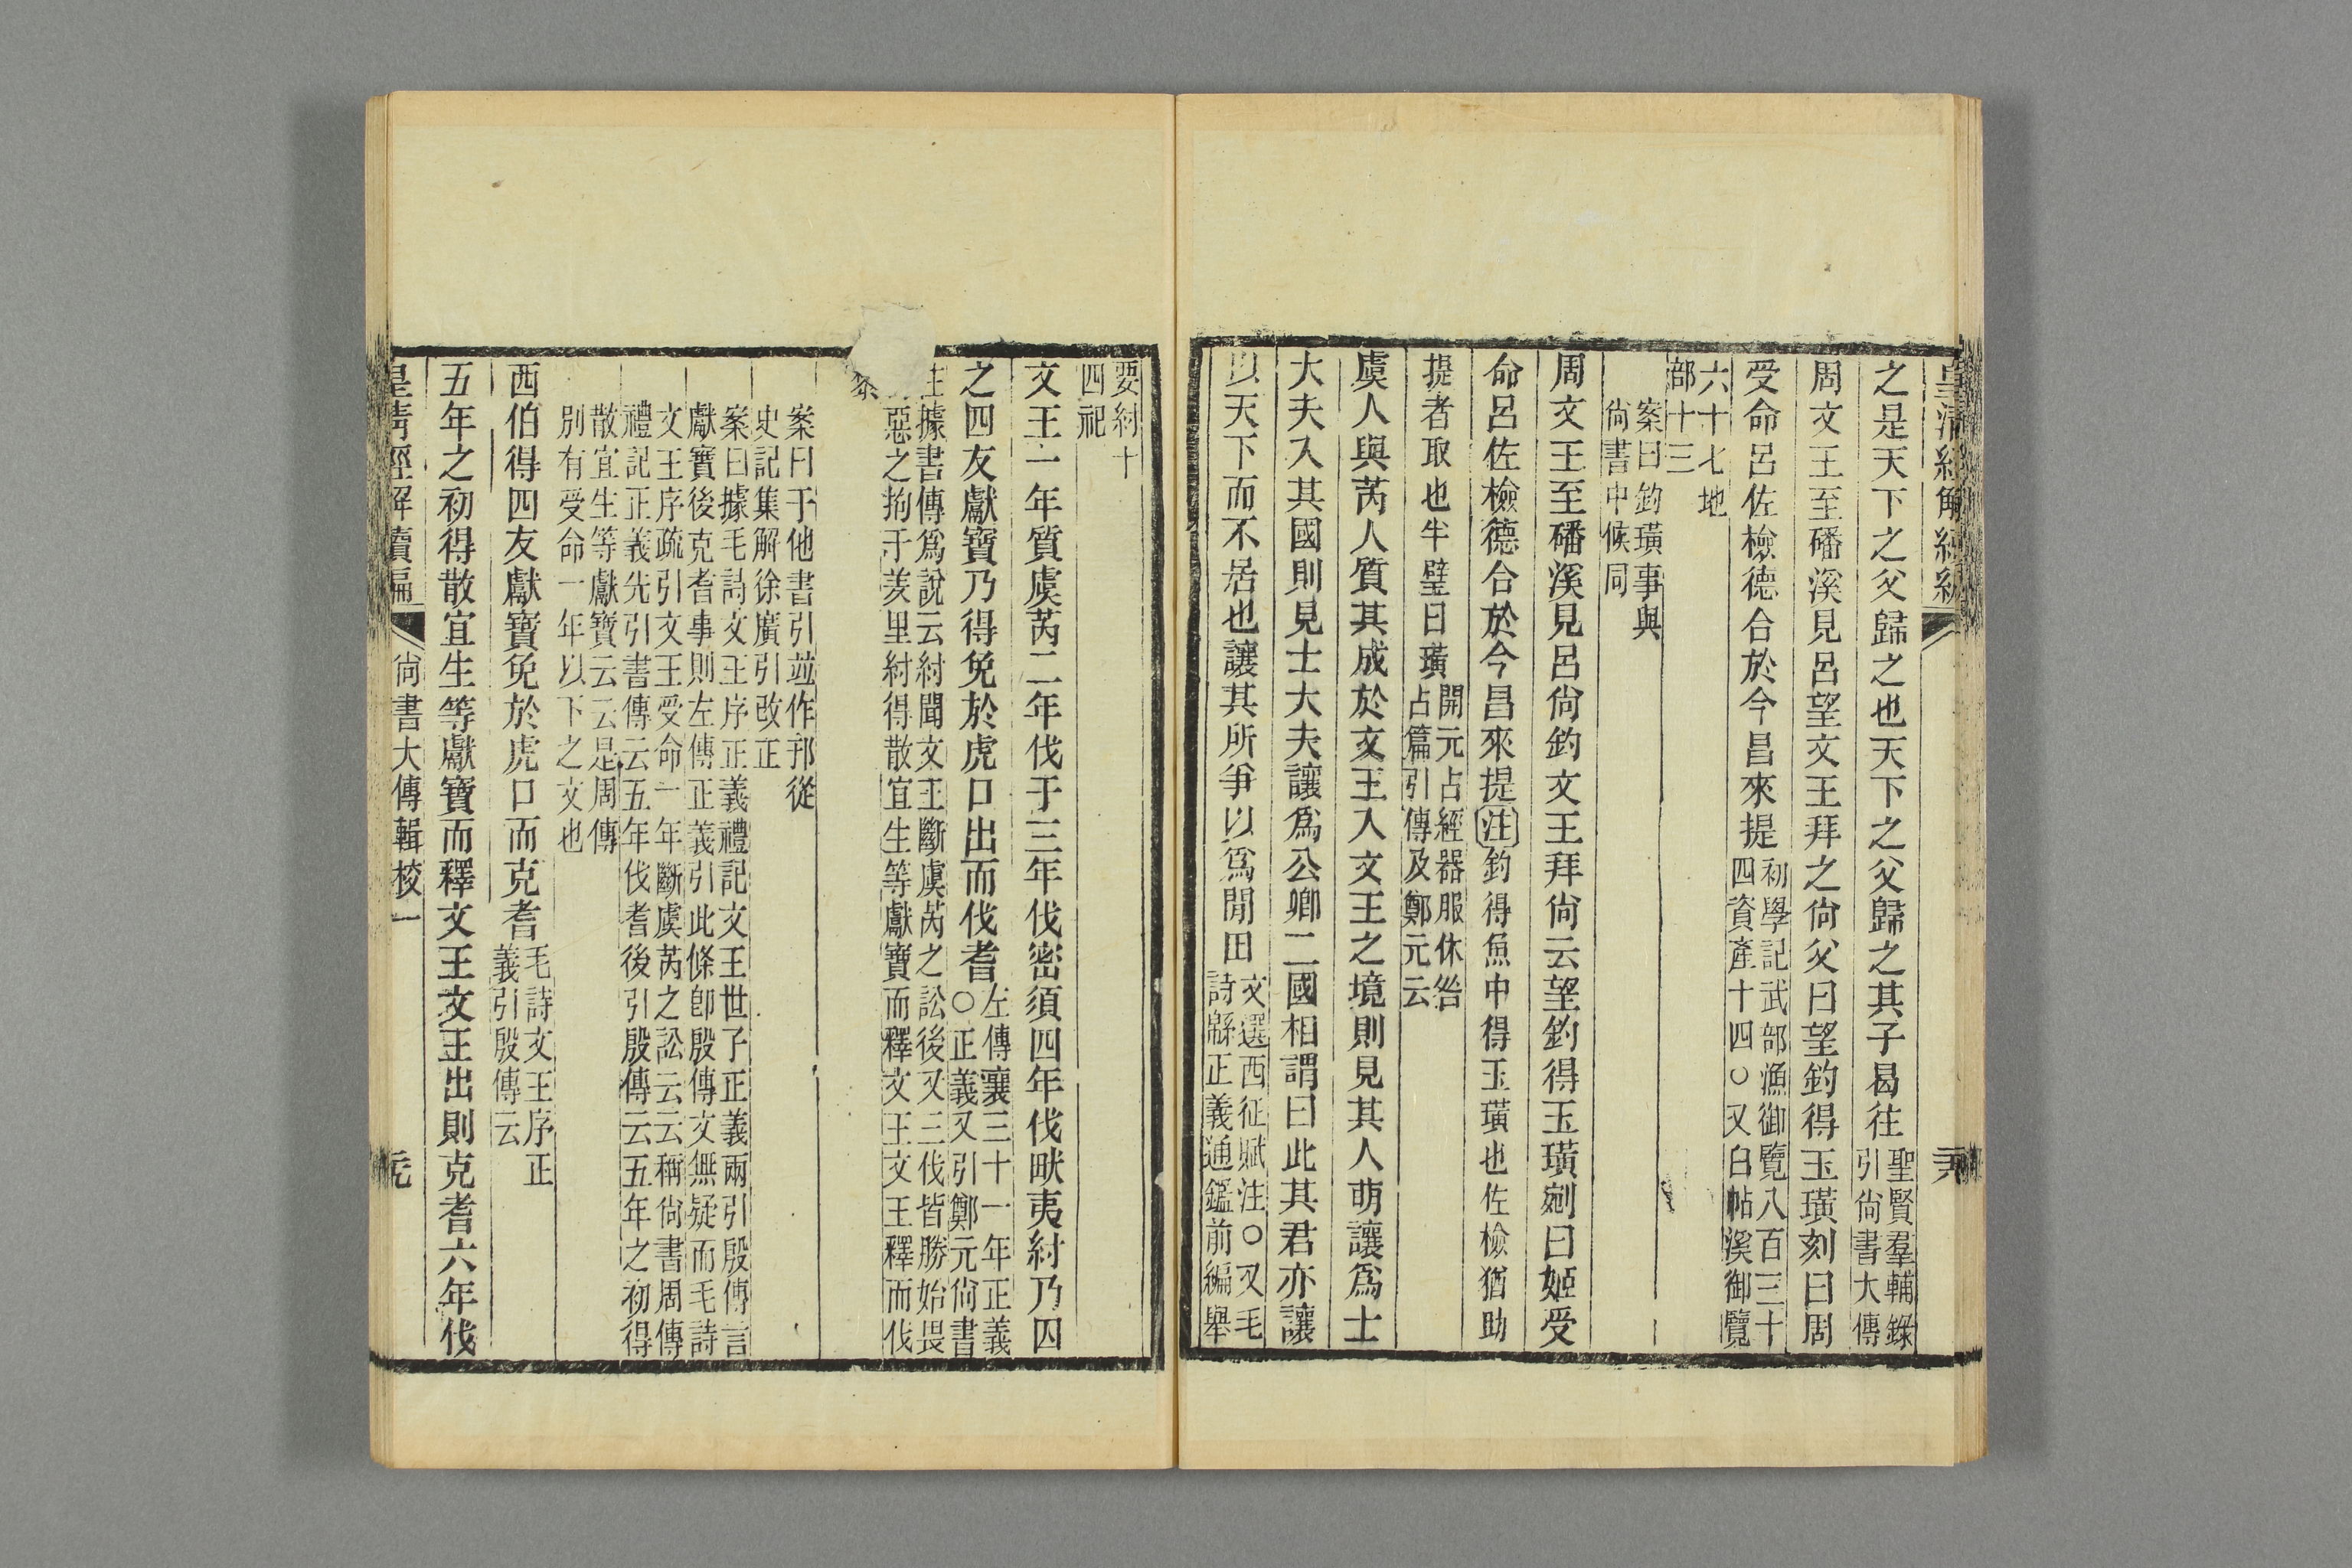 皇清經解續編
之是天下之父歸之也天下之父歸之其子曷往聖賢羣輔錄
引尙書大傳
周文王至磻溪見呂望文王拜之尙父曰望釣得玉璜刻曰周
受命呂佐檢德合於今昌來提初學記武部漁御覽八百三十
四資產十四○又白帖溪御覽
六十七地
部十三
案曰釣璜事與
尙書中候同
周文王至磻溪見呂尙釣文王拜尙云望釣得玉璜剜曰姬受
命呂佐檢德合於今昌來提注釣得魚中得玉璜也佐檢猶助
提者取也半璧曰璜開元占經器服休咎
占篇引傳及鄭元云
虞人與芮人質其成於文王入文王之境則見其人萌讓爲士
大夫入其國則見士大夫讓爲公卿二國相謂曰此其君亦讓
以天下而不居也讓其所爭以爲閒田文選西征賦注○又毛
詩緜正義通鑑前編舉
要紂十
四祀
文王一年質虞芮二年伐于三年伐密須四年伐畎夷紂乃囚
之四友獻寶乃得免於虎口出而伐耆左傳襄三十一年正義
○正義又引鄭元尙書
注據書傳爲說云紂聞文王斷虞芮之訟後又三伐皆勝始畏
惡之拘于羑里紂得散宜生等獻寶而釋文王文王釋而伐
案曰于他書引竝作邘從
史記集解徐廣引改正
案曰據毛詩文王序正義禮記文王世子正義兩引殷傳言
獻寶後克耆事則左傳正義引此條卽殷傳文無疑而毛詩
文王序疏引文王受命一年斷虞芮之訟云云稱尙書周傳
禮記正義先引書傳云五年伐耆後引殷傳云五年之初得
散宜生等獻寶云云是周傳
別有受命一年以下之文也
西伯得四友獻寶免於虎口而克耆毛詩文王序正
義引殷傳云
五年之初得散宜生等獻寶而釋文王文王出則克耆六年伐
皇清經解續編
尙書大傳輯校一